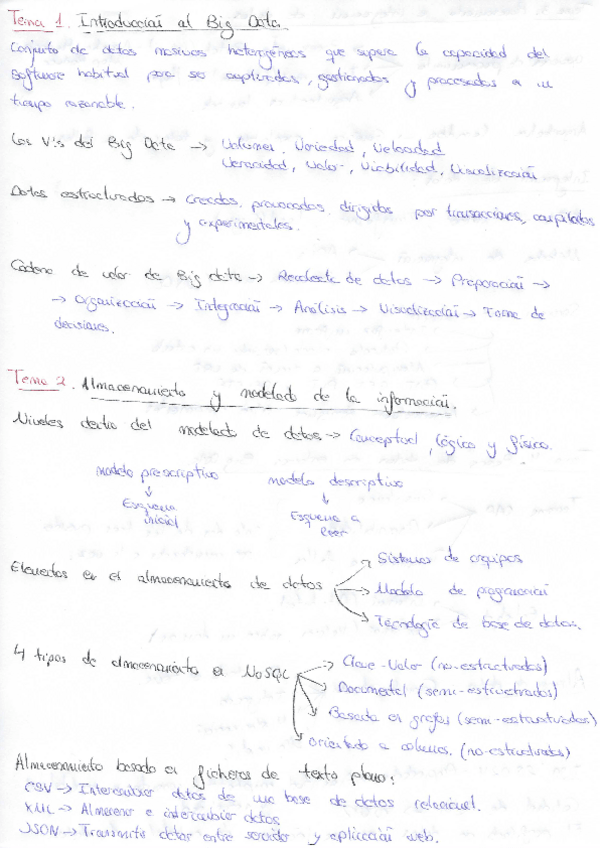 Tema 1. Introducción al Big Data.
Conjunto de datos masivos heterogéneos que supera la capacidad del
software habitual para ser capturados, gestionados y procesados en un
tiempo razonable.
Las V's del Big Data → Volumen, Variedad, Velocidad
Veracidad, Valor, Viabilidad, Visualización
Datos estructurados → Creados, provocados, dirigidos por transacciones, compilados
y experimentales.
Cadena de valor de Big data → Recolecta de datos → Preparación →
→ Organización → Integración → Análisis → Visualización → Toma de
decisiones.
Tema 2. Almacenamiento y modelado de la información.
Niveles dentro del modelado de datos → Conceptual, lógico y físico.
modelo prescriptivo modelo descriptivo
↓ ↓
Esquema Esquema a
inicial leer
Elementos en el almacenamiento de datos → Sistemas de equipos
→ Modelo de programación
→ Tecnología de base de datos.
4 tipos de almacenamiento en NoSQL → Clave-Valor (no-estructurados)
→ Documental (semi-estructurados)
→ Basada en grafos (semi-estructurados)
→ orientado a columnas. (no-estructurados)
Almacenamiento basado en ficheros de texto plano:
CSV → Intercambiar datos de una base de datos relacional.
XML → Almacenar e intercambiar datos
JSON → Transmitir datos entre servidor y aplicación web.